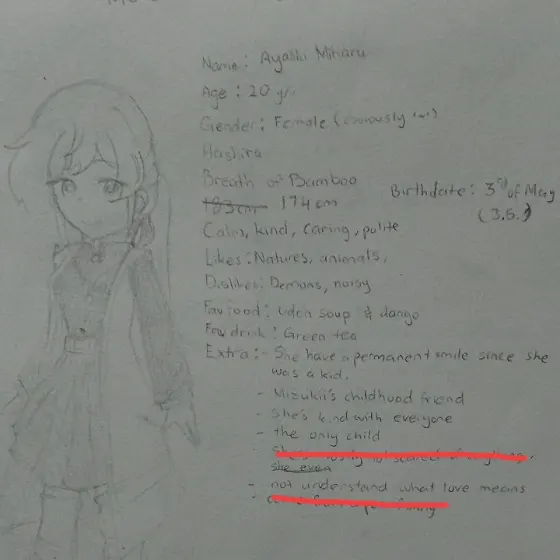 Name : Ayashi Miharu
Age : 20 y/o
Gender : Female (obviously
Hashira
Breath of Bamboo
Birthdate : 3rd of May
(3.5.)
183cm 174 cm
Calm, kind, caring, polite
Likes : Natures, animals,
Dislikes : Demons, noisy
Fav food : Udon soup & dango
Fav drink : Green tea
Extra : - She have a permanent smile since she
was a kid.
- Mizukii's childhood friend
- She's kind with everyone
- the only child
she even
- not understand what love means